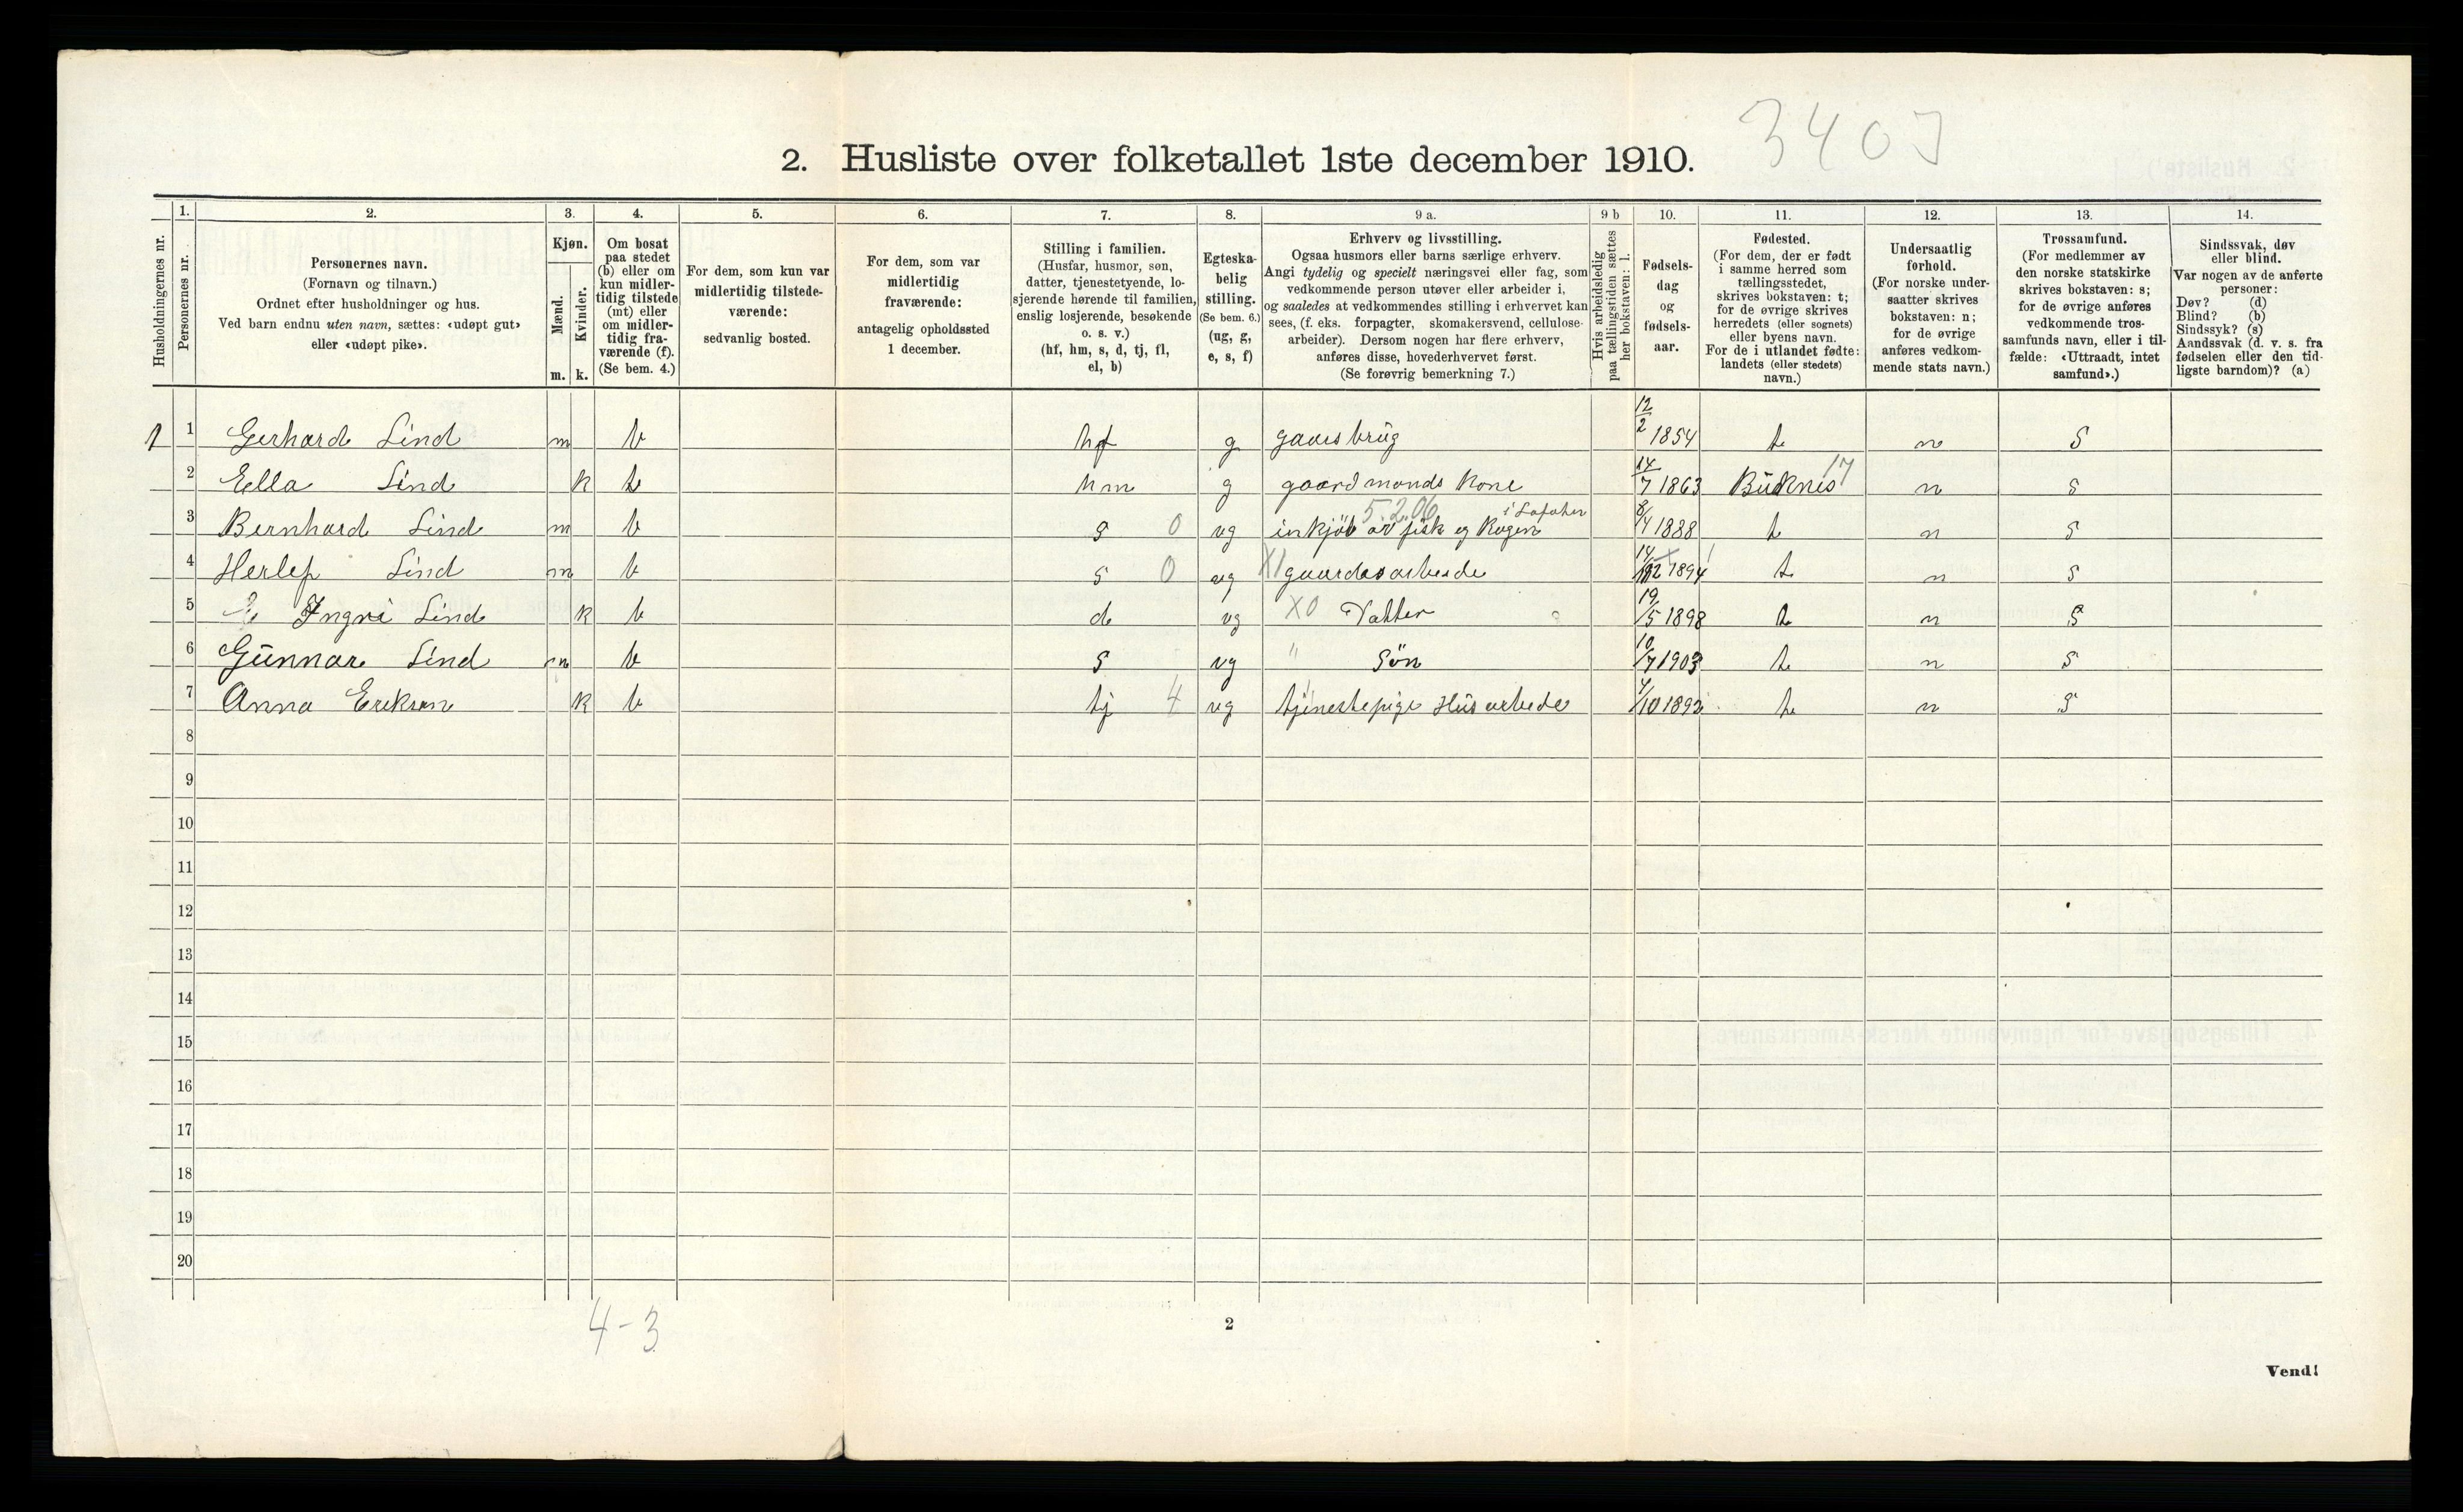 3403
2. Husliste over folketallet 1ste december 1910.
Husholdningernes nr.
1.
Personernes nr.
2.
Personernes navn.
(Fornavn og tilnavn.)
Ordnet efter husholdninger og hus.
Ved barn endnu uten navn, sættes: «udøpt gut»
eller «udøpt pike».
3.
Kjøn.
Mænd.
Kvinder.
m. k.
4.
Om bosat
paa stedet
(b) eller om
kun midler-
tidig tilstede
(mt) eller
om midler-
tidig fra-
værende (f).
(Se bem. 4.)
5.
For dem, som kun var
midlertidig tilstede-
værende:
sedvanlig bosted.
6.
For dem, som var
midlertidig
fraværende:
antagelig opholdssted
1 december.
7.
Stilling i familien.
(Husfar, husmor, søn,
datter, tjenestetyende, lo-
sjerende hørende til familien,
enslig losjerende, besøkende
o. s. v.)
(hf, hm, s, d, tj, fl,
el, b)
8.
Egteska-
belig
stilling.
(Se bem. 6.)
(ug, g,
e, s, f)
9 a.
Erhverv og livsstilling.
Ogsaa husmors eller barns særlige erhverv.
Angi tydelig og specielt næringsvei eller fag, som
vedkommende person utøver eller arbeider i,
og saaledes at vedkommendes stilling i erhvervet kan
sees, (f. eks. forpagter, skomakersvend, cellulose-
arbeider). Dersom nogen har flere erhverv,
anføres disse, hovederhvervet først.
(Se forøvrig bemerkning 7.)
9 b
Hvis arbeidsledig
paa tællingstiden sættes
her bokstaven: l.
10.
Fødsels-
dag
og
fødsels-
aar.
11.
Fødested.
(For dem, der er født
i samme herred som
tællingsstedet,
skrives bokstaven: t;
for de øvrige skrives
herredets (eller sognets)
eller byens navn.
For de i utlandet fødte:
landets (eller stedets)
navn.)
12.
Undersaatlig
forhold.
(For norske under-
saatter skrives
bokstaven: n;
for de øvrige
anføres vedkom-
mende stats navn.)
13.
Trossamfund.
(For medlemmer av
den norske statskirke
skrives bokstaven: s;
for de øvrige anføres
vedkommende tros-
samfunds navn, eller i til-
fælde: «Uttraadt, intet
samfund».)
14.
Sindssvak, døv
eller blind.
Var nogen av de anførte
personer:
Døv? (d)
Blind? (b)
Sindssyk? (s)
Aandssvak (d. v. s. fra
fødselen eller den tid-
ligste barndom)? (a)
1 1 Gerhard Lind m b hf g gaardsbrug 12/2 1854 t n S
2 Ella Lind k b hm g gaardmands Kone 14/7 1863 Buknes 17 n s
3 Bernhard Lind m b s 0 ug inkjöb av fisk og Rogen i Lofoten 5.2.06 8/4 1888 t n s
4 Herlef Lind m b s 0 ug X1 gaardsarbeide 14/12 1894 t n s
5 Ingri Lind k b d ug X0 Datter 19/5 1898 t n S
6 Gunnar Lind m b s ug " Sön 10/7 1903 t n S
7 Anna Eriksen k b tj 4 ug tjenestepige Husarbede 4/10 1892 t n S
8
9
10
11
12
13
14
15
16
17
18
19
20
4-3
2
Vend!